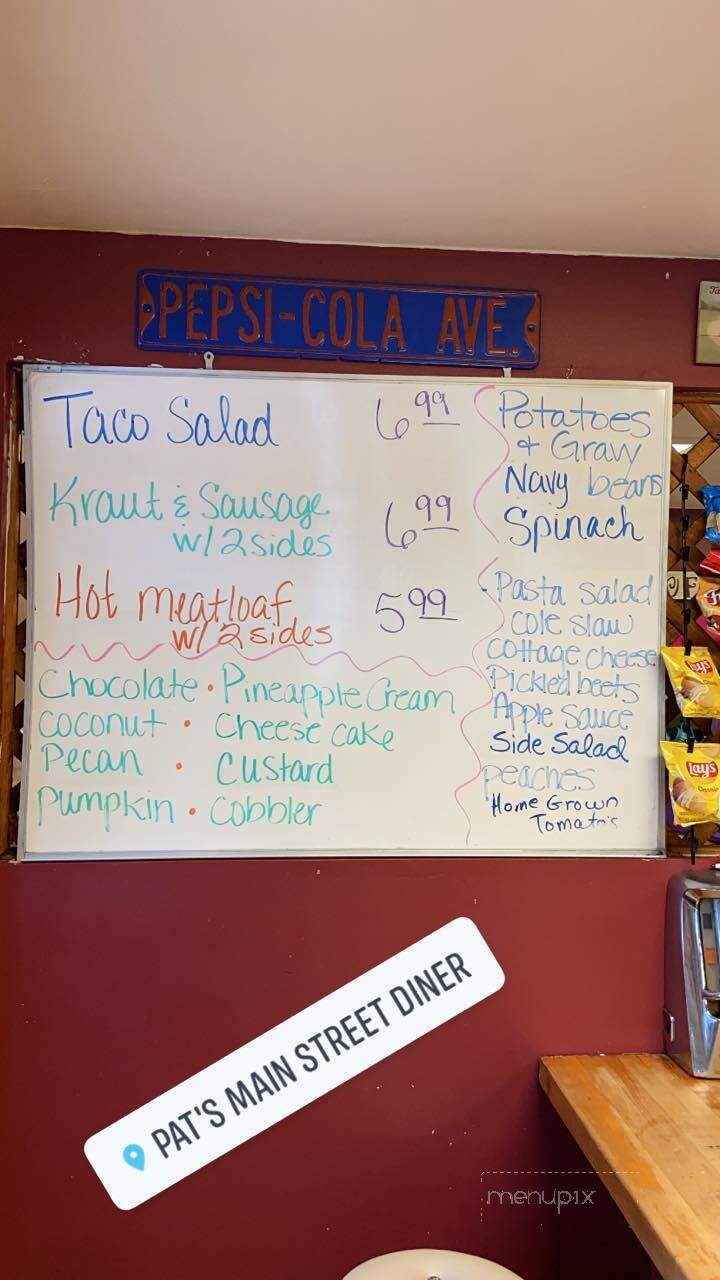 PEPSI-COLA AVE.
Taco Salad 6 99
Kraut & Sausage
w/ 2 sides 6 99
Hot meatloaf
w/ 2 sides 5 99
Chocolate • Pineapple Cream
coconut • Cheese cake
Pecan • Custard
Pumpkin • Cobbler
Potatoes
+ Gravy
Navy beans
Spinach
Pasta salad
cole slaw
cottage cheese
Pickled beets
Apple Sauce
Side Salad
peaches
Home Grown
Tomato's
Lay's
Lay's
Classic
PAT'S MAIN STREET DINER
menupix